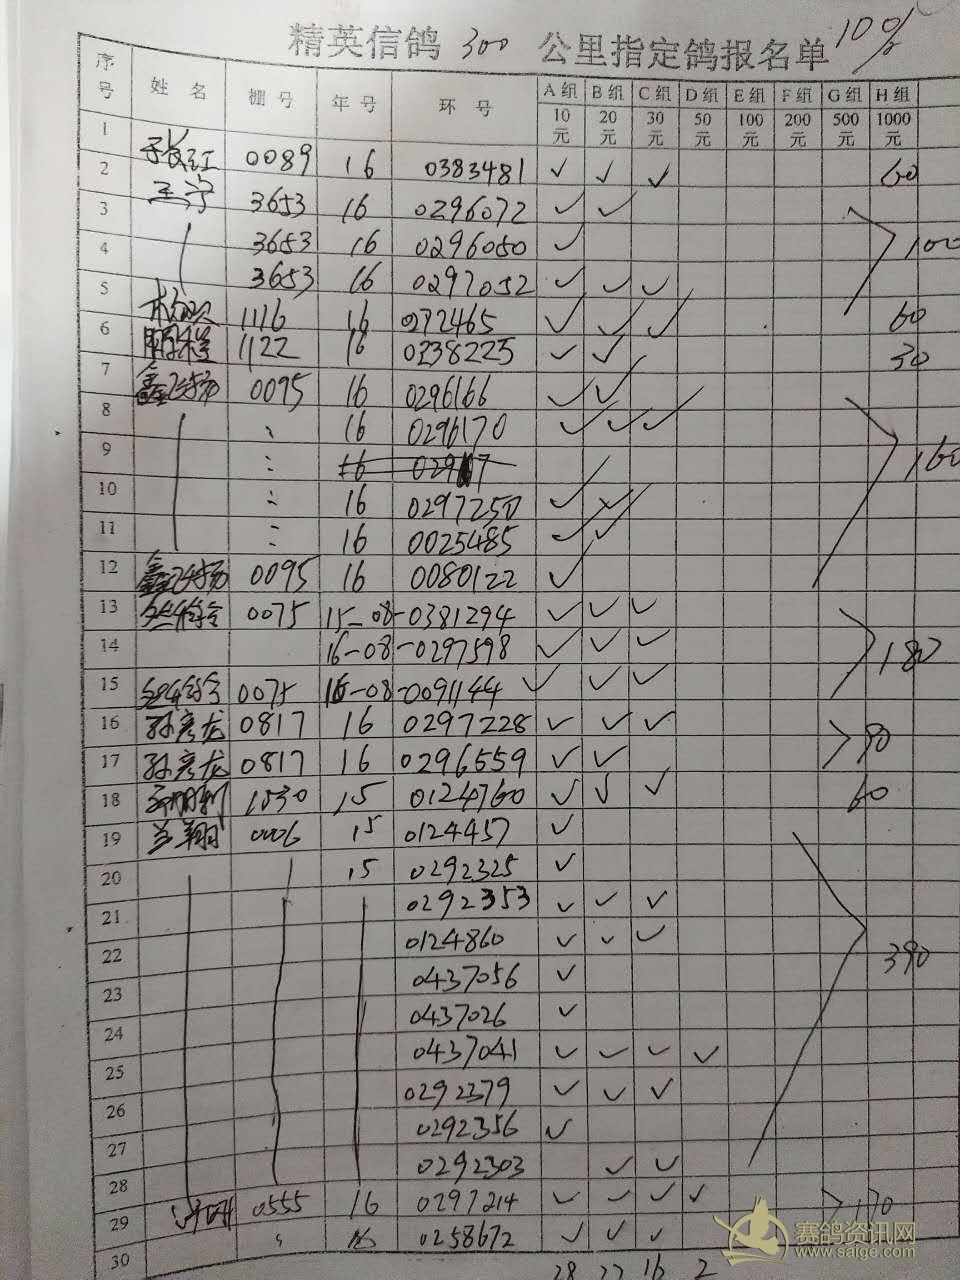 精英信鸽 300 公里指定鸽报名单 10%
序号 姓名 棚号 年号 环号 A组 B组 C组 D组 E组 F组 G组 H组
10元 20元 30元 50元 100元 200元 500元 1000元
1
2 张红 0089 16 0383481 ✓ ✓ ✓ 60
3 王宁 3653 16 0296072 ✓ ✓
4 3653 16 0296050 ✓ 100
5 3653 16 0297052 ✓ ✓ ✓
6 1116 16 0272465 ✓ ✓ ✓ 60
7 鹏程 1122 16 0238225 ✓ ✓ 30
8 鑫飞扬 0095 16 0296166 ✓ ✓
9 16 0296170 ✓ ✓ ✓
10 16 160
11 16 0297250 ✓ ✓
12 16 0025485 ✓ ✓
13 鑫飞扬 0095 16 0080122 ✓
14 0075 15-08-0381294 ✓ ✓ ✓
15 16-08-0297598 ✓ ✓ ✓ 180
16 0075 16-08-0091144 ✓ ✓ ✓
17 孙彦龙 0817 16 0297228 ✓ ✓ ✓ 90
18 孙彦龙 0817 16 0296559 ✓ ✓
19 1530 15 0124760 ✓ ✓ ✓ 60
20 兰翔 0006 15 0124457 ✓
21 15 0292325 ✓
22 0292353 ✓ ✓ ✓
23 0124860 ✓ ✓ ✓ 390
24 0437056 ✓
25 0437026 ✓
26 0437041 ✓ ✓ ✓ ✓
27 0292379 ✓ ✓ ✓
28 0292356 ✓
29 0292303 ✓ ✓
30 0555 16 0297214 ✓ ✓ ✓ ✓ 170
16 0258672 ✓ ✓ ✓
28 22 16 2
赛鸽资讯网
www.saige.com